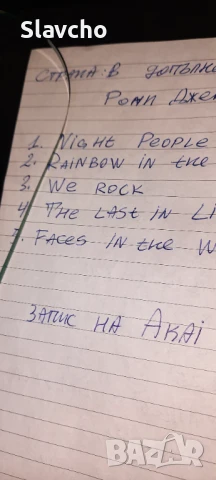 Slavcho
СТРАНА: В ДОПЪЛН
РОНИ ДЖЕ
1. NIGHT PEOPLE
2. RAINBOW IN THE
3. WE ROCK
4. THE LAST IN LI
5. FACES IN THE W
ЗАПИС НА AKAI
BAZAR